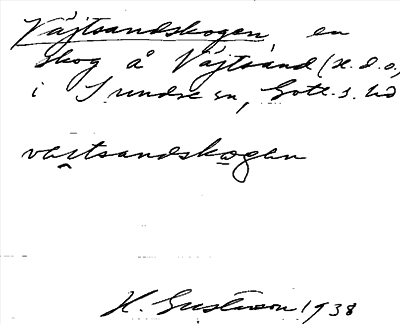 Väjtsandskogen en
skog å Väjtsand (se d.o.)
i Sundre sn, Gotl. s. hd
vaitsandskogen
H. Gustavson 1938